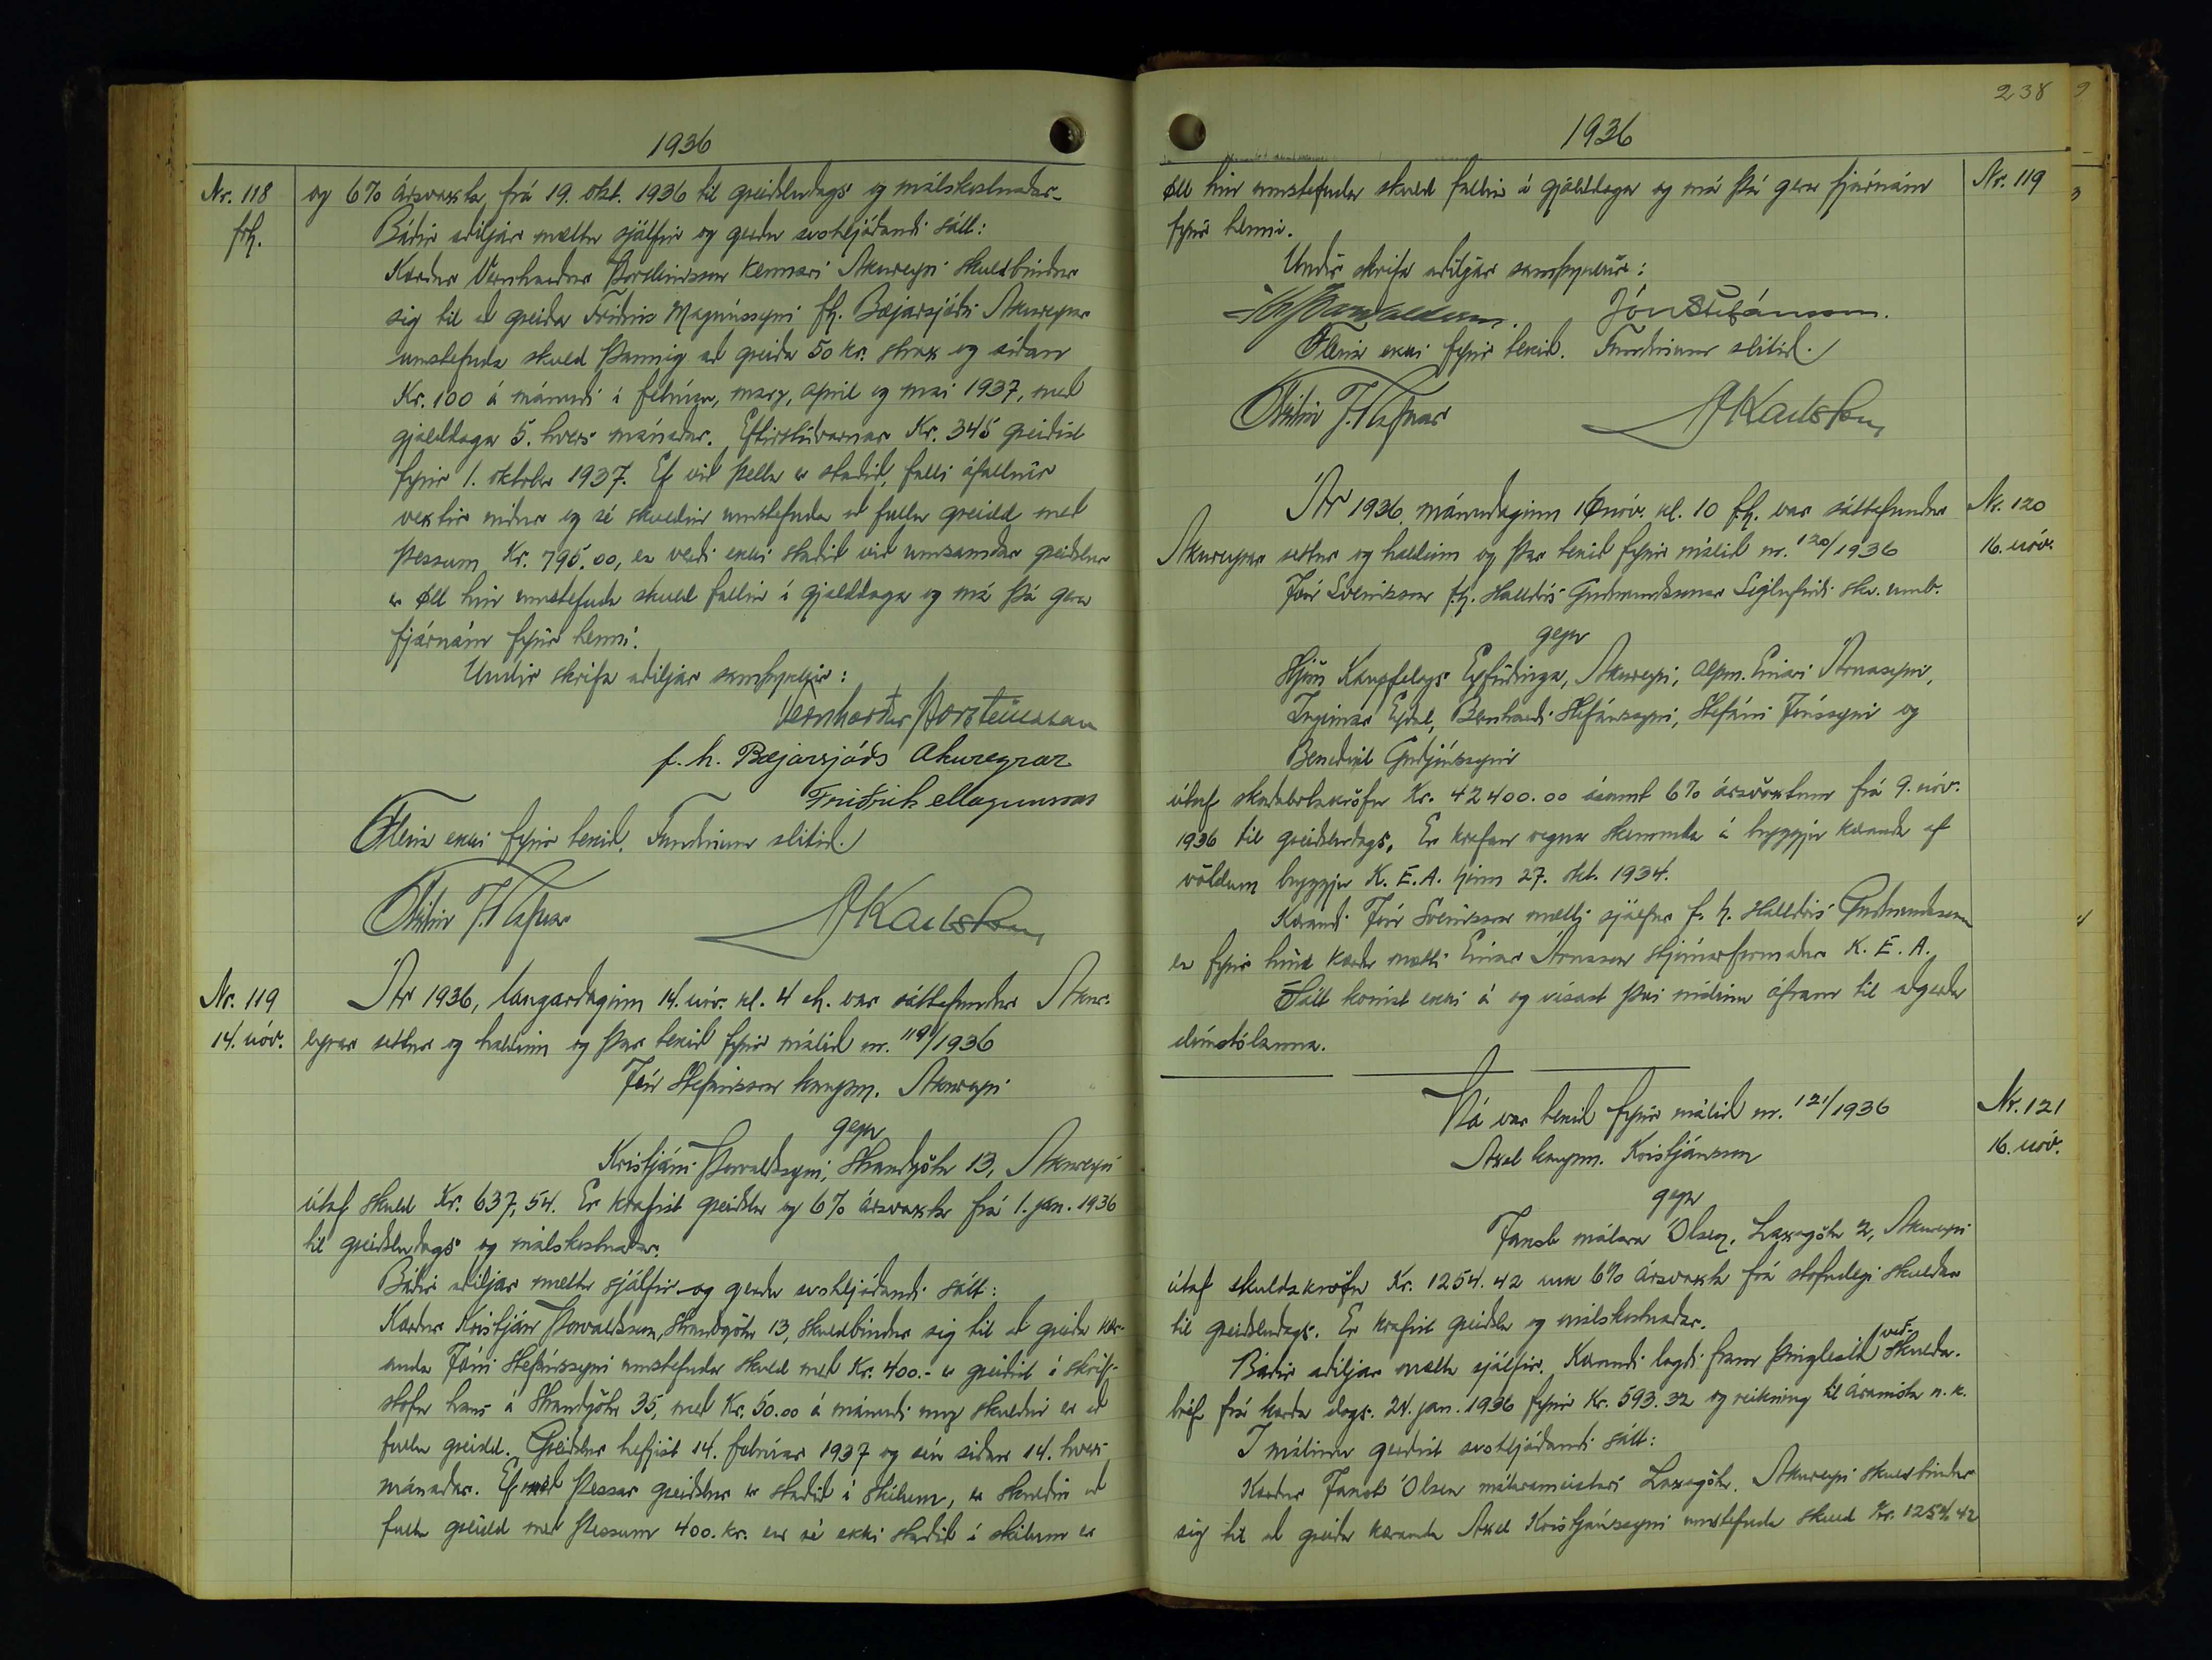 1936
Nr. 118
frh.
og 6% ársvaxta frá 19. okt. 1936 til greiðsludags og málskostnaðar.
Báðir aðiljar mættu sjálfir og gerðu svohljóðandi sátt:
Kærður Vernharður Þorsteinsson kennari Akureyri skuldbindur
sig til að greiða Friðrik Magnússyni fh. Bæjarsjóðs Akureyrar
umstefnda skuld þannig að greiða 50 kr. strax og síðan
Kr. 100 á mánuði í febrúar, marz, apríl og maí 1937, með
gjalddaga 5. hvers mánaðar. Eftirstöðvarnar Kr. 345 greiðist
fyrir 1. október 1937. Ef við þetta er staðið, falli áfallnir
vextir niður og sé skuldin umstefnda að fullu greidd með
þessum Kr. 795.00, en verði ekki staðið við umsamdar greiðslur
er öll hin umstefnda skuld fallin í gjalddaga og má þá gera
fjárnám fyrir henni.
Undir skrifa aðiljar samþykkir:
Vernharður Þorsteinsson
f. h. Bæjarsjóðs Akureyrar
Friðrik Magnússon
Fleira ekki fyrir tekið. Fundinum slitið.
Nr. 119
14. nóv.
Ár 1936, laugardaginn 14. nóv. kl. 4 eh. var sáttafundur Akur-
eyrar settur og haldinn og þar tekið fyrir málið nr. 119/1936
Jón Stefánsson kaupm. Akureyri
gegn
Kristjáni Þorvaldssyni, Strandgötu 13, Akureyri
útaf skuld Kr. 637,54. Er krafist greiðslu og 6% ársvaxta frá 1. jan. 1936
til greiðsludags og málskostnaðar.
Báðir aðiljar mættu sjálfir og gerðu svohljóðandi sátt:
Kærður Kristján Þorvaldsson, Strandgötu 13, skuldbindur sig til að greiða kær-
anda Jóni Stefánssyni umstefnda skuld með Kr. 400.- er greiðist í skrif-
stofu hans á Strandgötu 35, með Kr. 50.00 á mánuði unz skuldin er að
fullu greidd. Greiðslur hefjist 14. febrúar 1937 og svo síðan 14. hvers
mánaðar. Ef með þessar greiðslur er staðið í skilum, er skuldin að
fullu greidd með þessum 400. kr. en sé ekki staðið í skilum er
238
1936
Nr. 119
öll hin umstefnda skuld fallin í gjalddaga og má þá gera fjárnám
fyrir henni.
Undir skrifa aðiljar samþykkir:
Jón Stefánsson.
Fleira ekki fyrir tekið. Fundinum slitið.
Nr. 120
16. nóv.
Ár 1936, mánudaginn 16. nóv. kl. 10 f.h. var sáttafundur
Akureyrar settur og haldinn og þar tekið fyrir málið nr. 120/1936
Jón Sveinsson f.h. Halldórs Guðmundssonar Siglufirði skv. umb.
gegn
Stjórn Kaupfélags Eyfirðinga, Akureyri, alþm. Einari Árnasyni,
Ingimar Eydal, Bernharði Stefánssyni, Stefáni Jónssyni og
Benedikt Guðjónssyni
útaf skaðabótakröfu Kr. 42400.00 ásamt 6% ársvöxtum frá 9. nóv.
1936 til greiðsludags. Er krafan vegna skemmda á bryggju kæranda af
völdum bryggju K.E.A. hinn 27. okt. 1934.
Kærandi Jón Sveinsson mætti sjálfur f. h. Halldórs Guðmundssonar
en fyrir hönd kærðu mætti Einar Árnason stjórnarformaður K.E.A.
Sátt komst ekki á og vísast því málinu áfram til aðgerða
dómstólanna.
Nr. 121
16. nóv.
Þá var tekið fyrir málið nr. 121/1936
Axel kaupm. Kristjánsson
gegn
Jakob málara Olsen, Laxagötu 2, Akureyri
útaf skuldakröfu Kr. 1254.42 auk 6% ársvaxta frá stofndegi skuldar
til greiðsludags. Er krafist greiðslu og málskostnaðar.
Báðir aðiljar mættu sjálfir. Kærandi lagði fram þinglesið veð-skulda-
bréf frá kærða dags. 24. jan. 1936 fyrir Kr. 593.32 og reikning til áramóta n. k.
Í málinu gerðist svohljóðandi sátt:
Kærður Jakob Olsen málarameistari Laxagötu, Akureyri skuldbindur
sig til að greiða kæranda Axel Kristjánssyni umstefnda skuld Kr. 1254.42